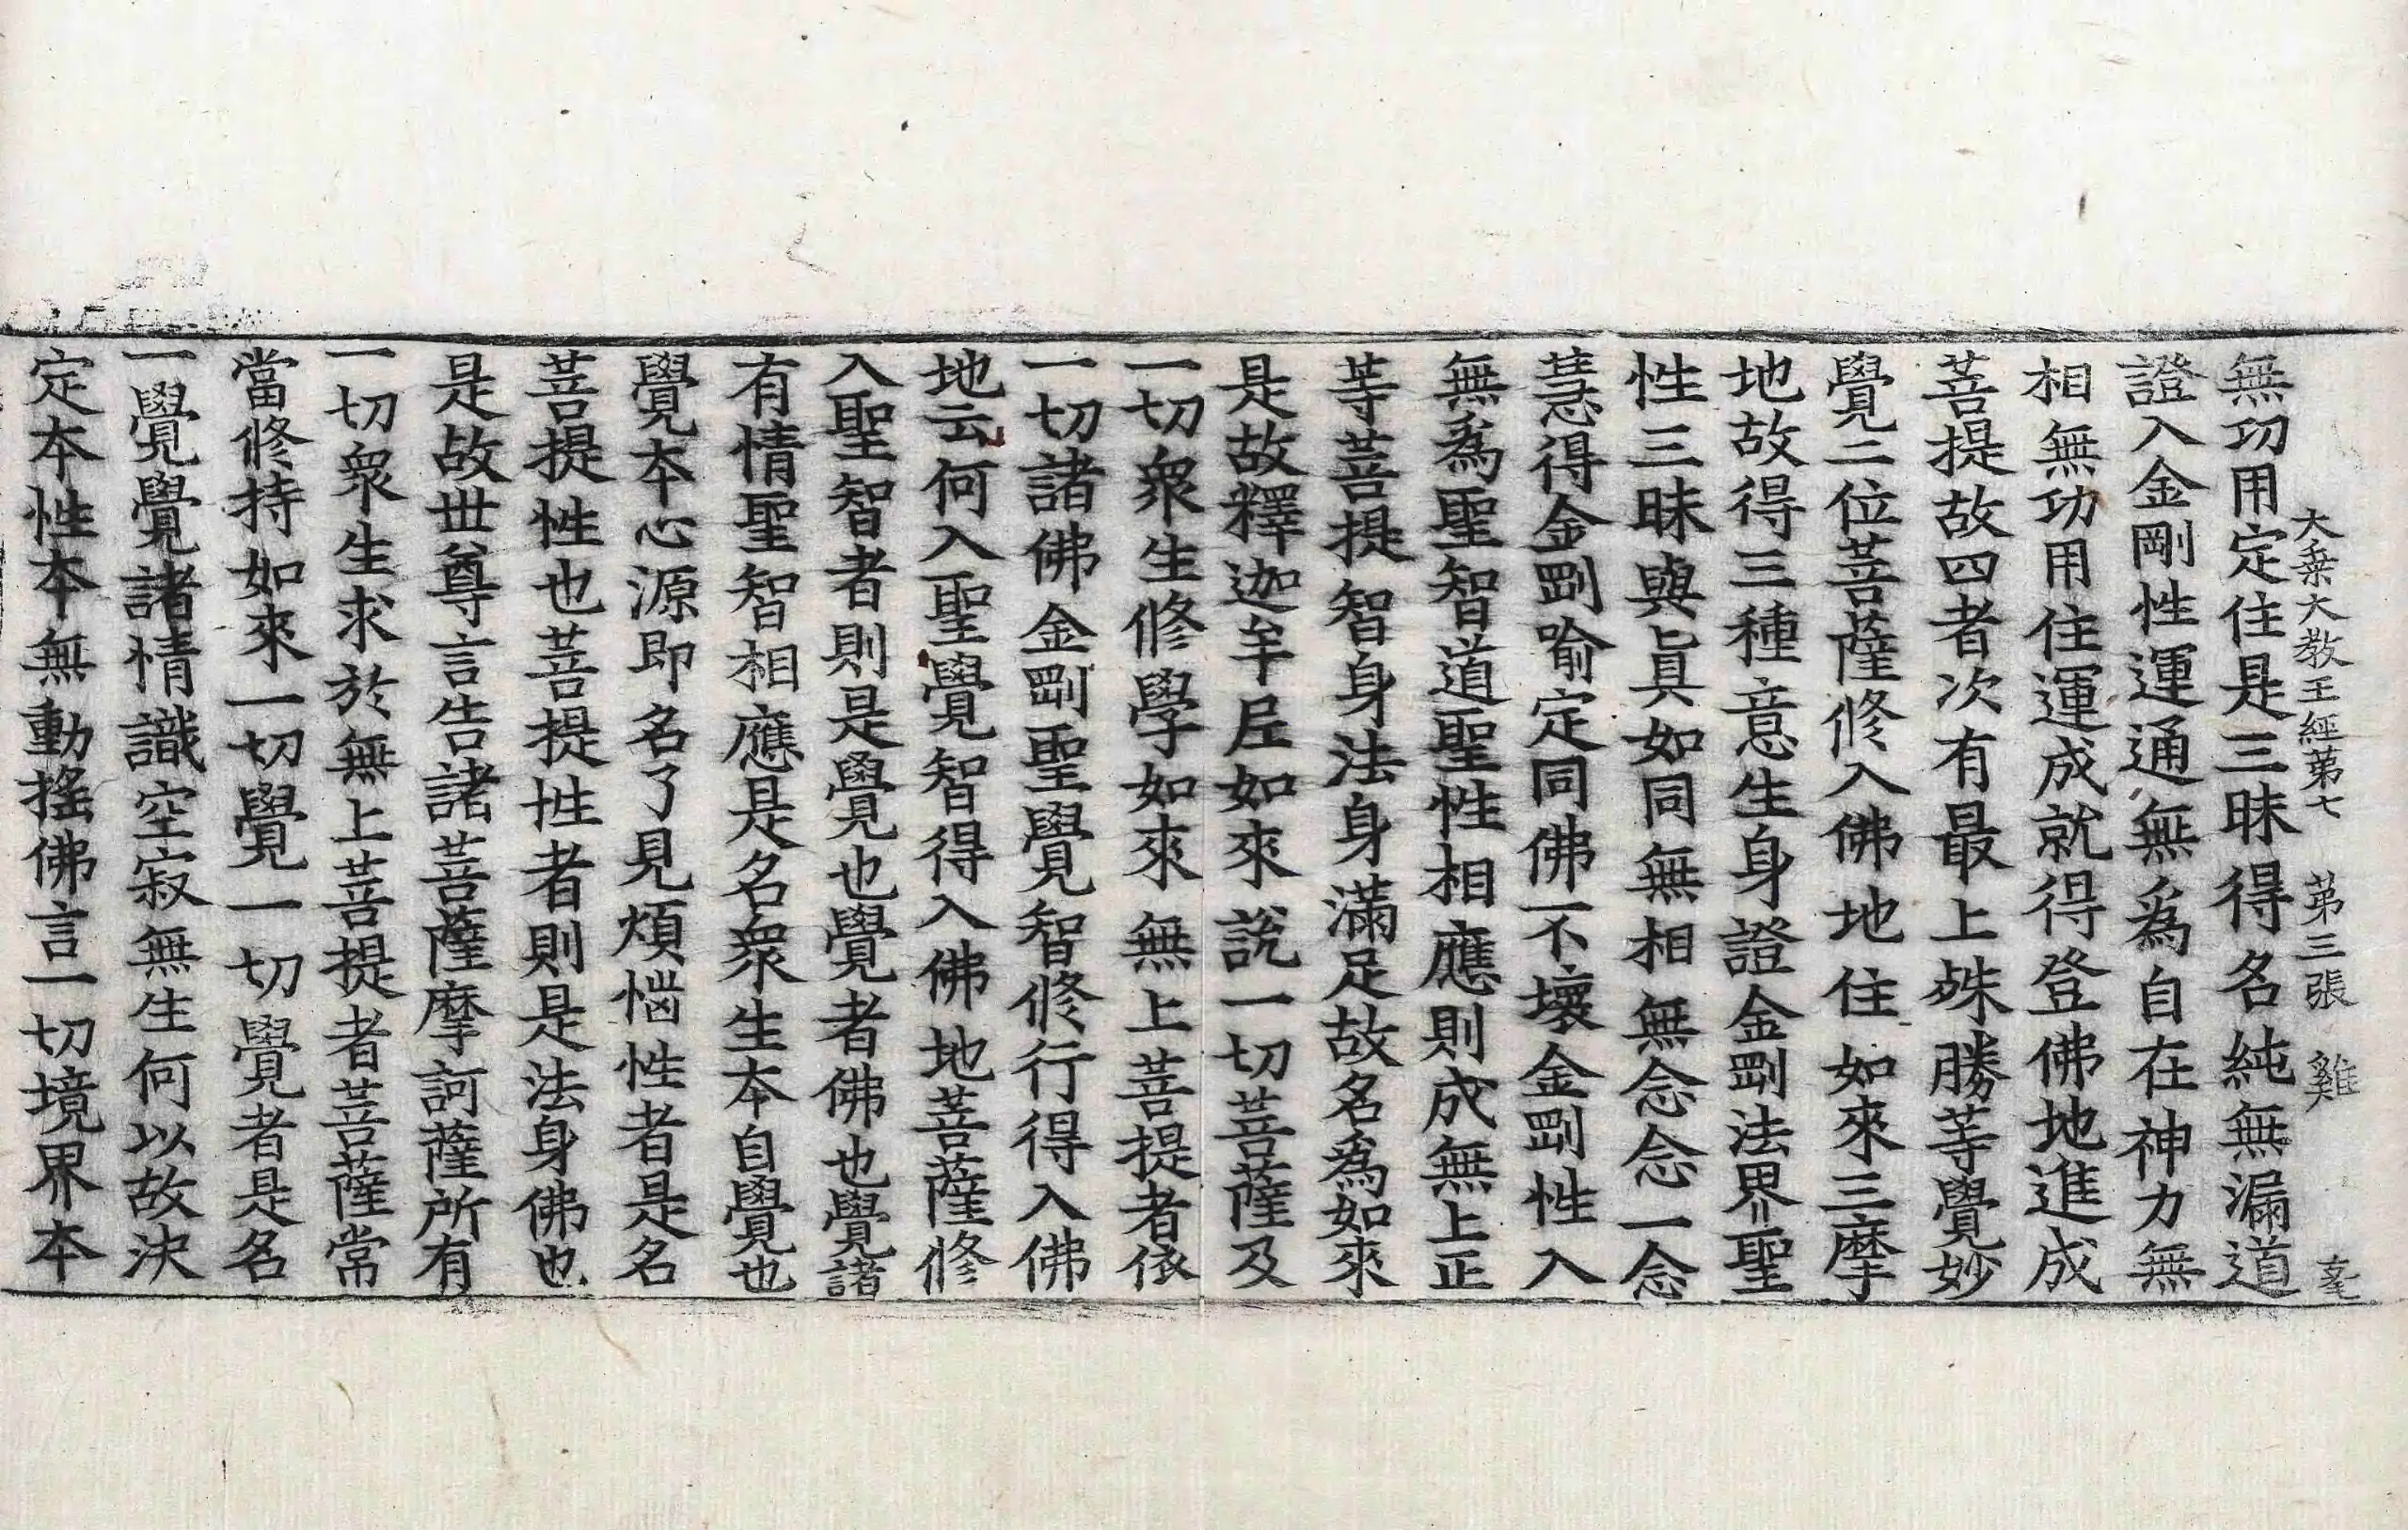 大乗大教王經第七　第三張　雞
無功用定住是三昧得名純無漏道
證入金剛性運通無爲自在神力無
相無功用住運成就得登佛地進成
菩提故四者次有最上殊勝等覺妙
覺二位菩薩修入佛地住如來三摩
地故得三種意生身證金剛法界聖
性三昧與眞如同無相無念念一念
慧得金剛喻定同佛不壞金剛性入
無爲聖智道聖性相應則成無上正
等菩提智身法身滿足故名爲如來
是故釋迦牟尼如來說一切菩薩及
一切衆生修學如來無上菩提者依
一切諸佛金剛聖覺智修行得入佛
地云何入聖覺智得入佛地菩薩修
入聖智者則是覺也覺者佛也覺諸
有情聖智相應是名衆生本自覺也
覺本心源即名了見煩惱性者是名
菩提性也菩提性者則是法身佛也
是故世尊言告諸菩薩摩訶薩所有
一切衆生求於無上菩提者菩薩常
當修持如來一切覺一切覺者是名
一覺覺諸情識空寂無生何以故決
定本性本無動搖佛言一切境界本